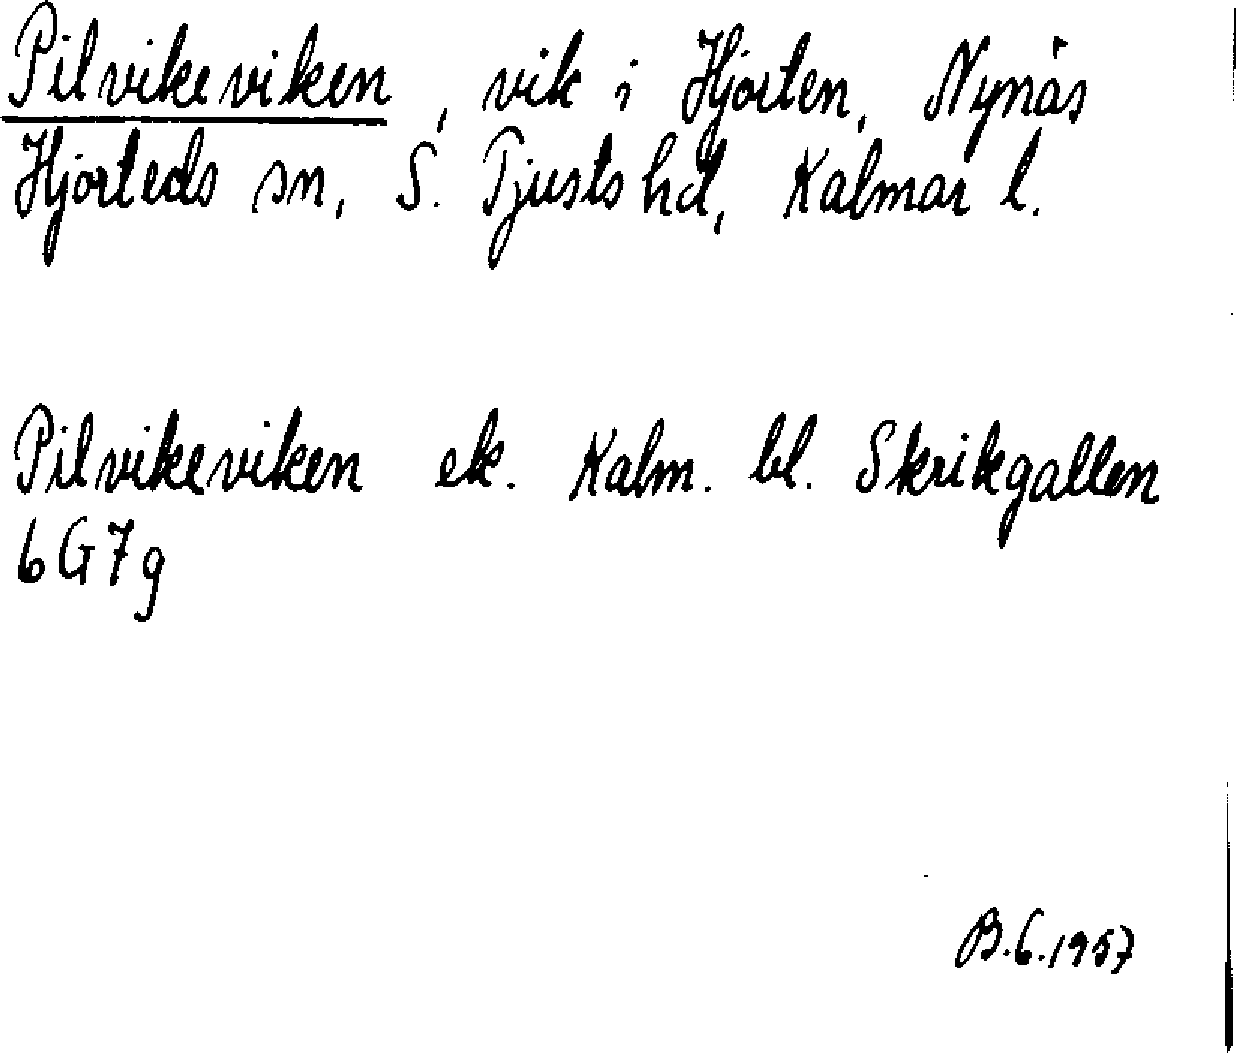 Pilvikeviken, vik i Hjorten, Nynäs
Hjorteds sn, S. Tjusts hd, Kalmar l.
Pilvikeviken ek. Kalm. bl. Skrikgallen
6G7g
B.G.1957